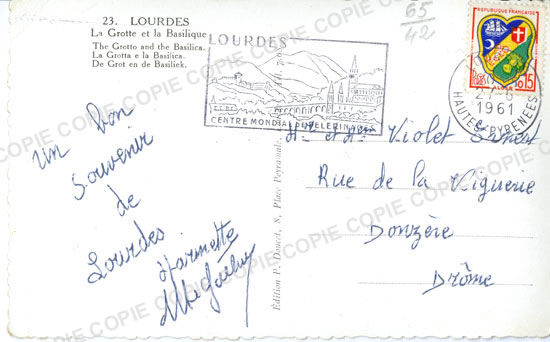 23. LOURDES
La Grotte et la Basilique
The Grotto and the Basilica.
La Grotta e la Basilica.
De Grot en de Basiliek.
65
42
LOURDES
CENTRE MONDIAL DE PELERINAGE
REPUBLIQUE FRANÇAISE
0,15
1961
HAUTES-PYRENEES
Un bon
souvenir
de
Lourdes
Edition P. Doucet, 8, Place Peyramale,
Mr et Mme Violet
Rue de la Viguerie
Donzère
Drôme
COPIE COPIE COPIE COPIE COPIE